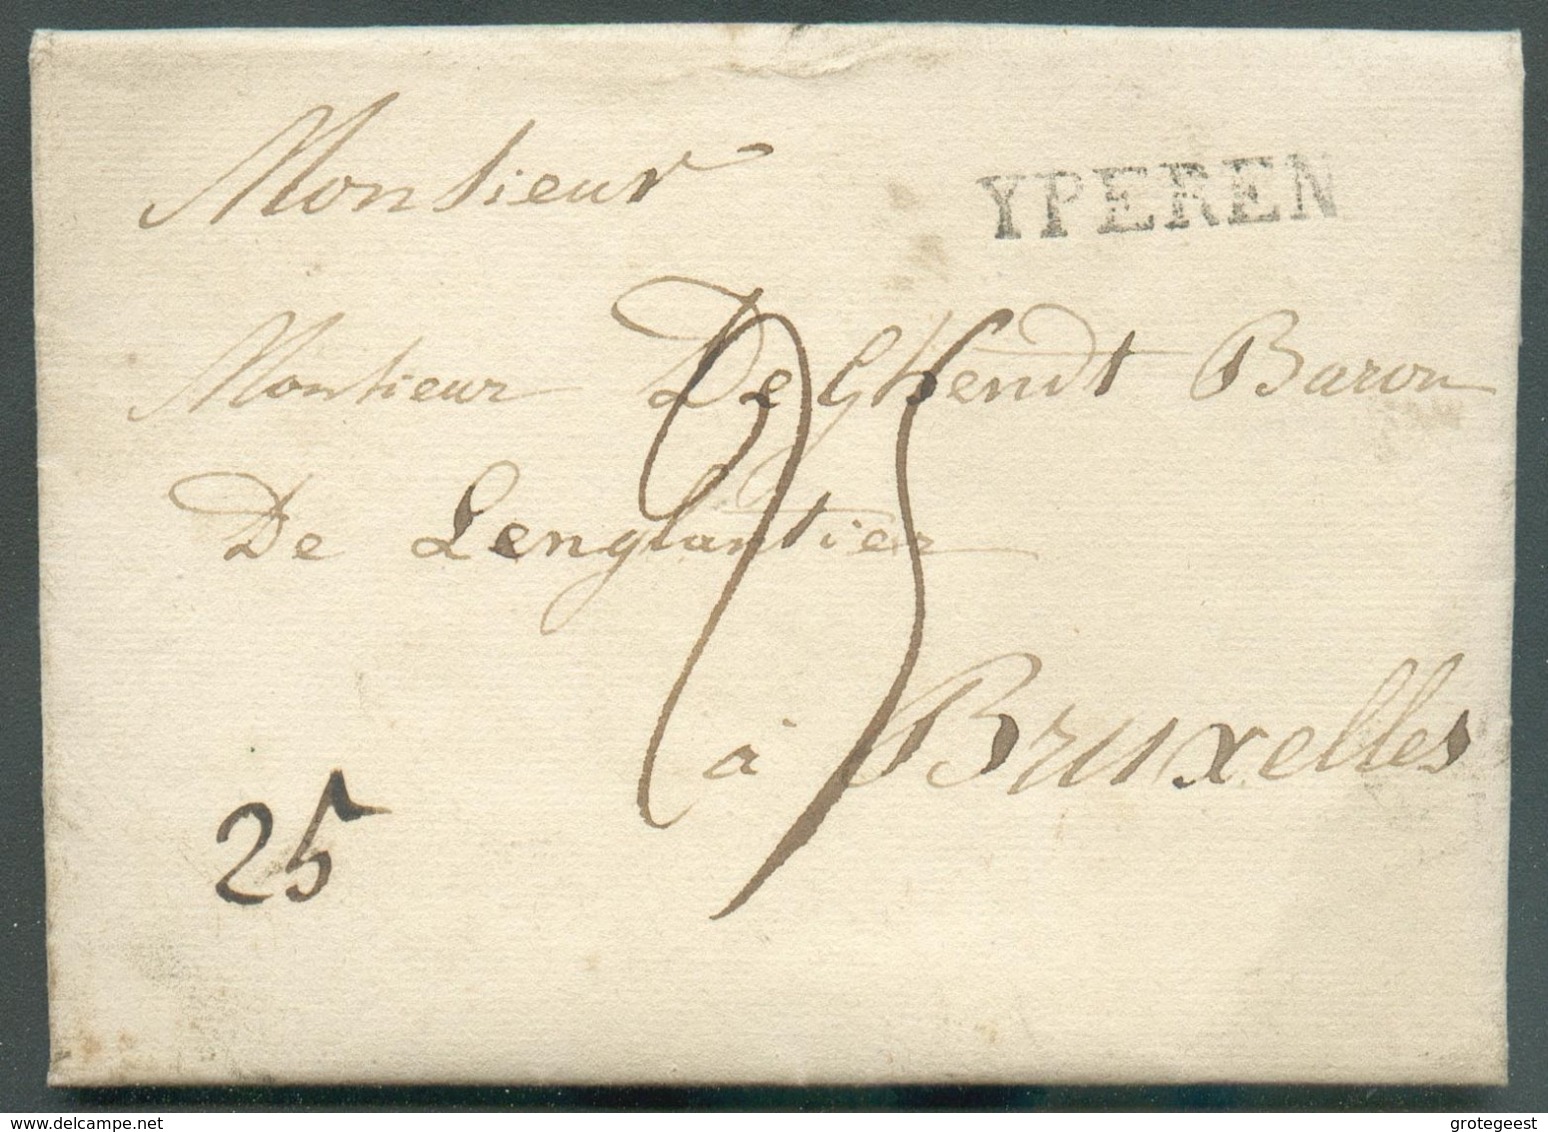 Monsieur
YPEREN
Monsieur De Ghendt Baron
De Lenglantier
25
à Bruxelles
25
grotegeest